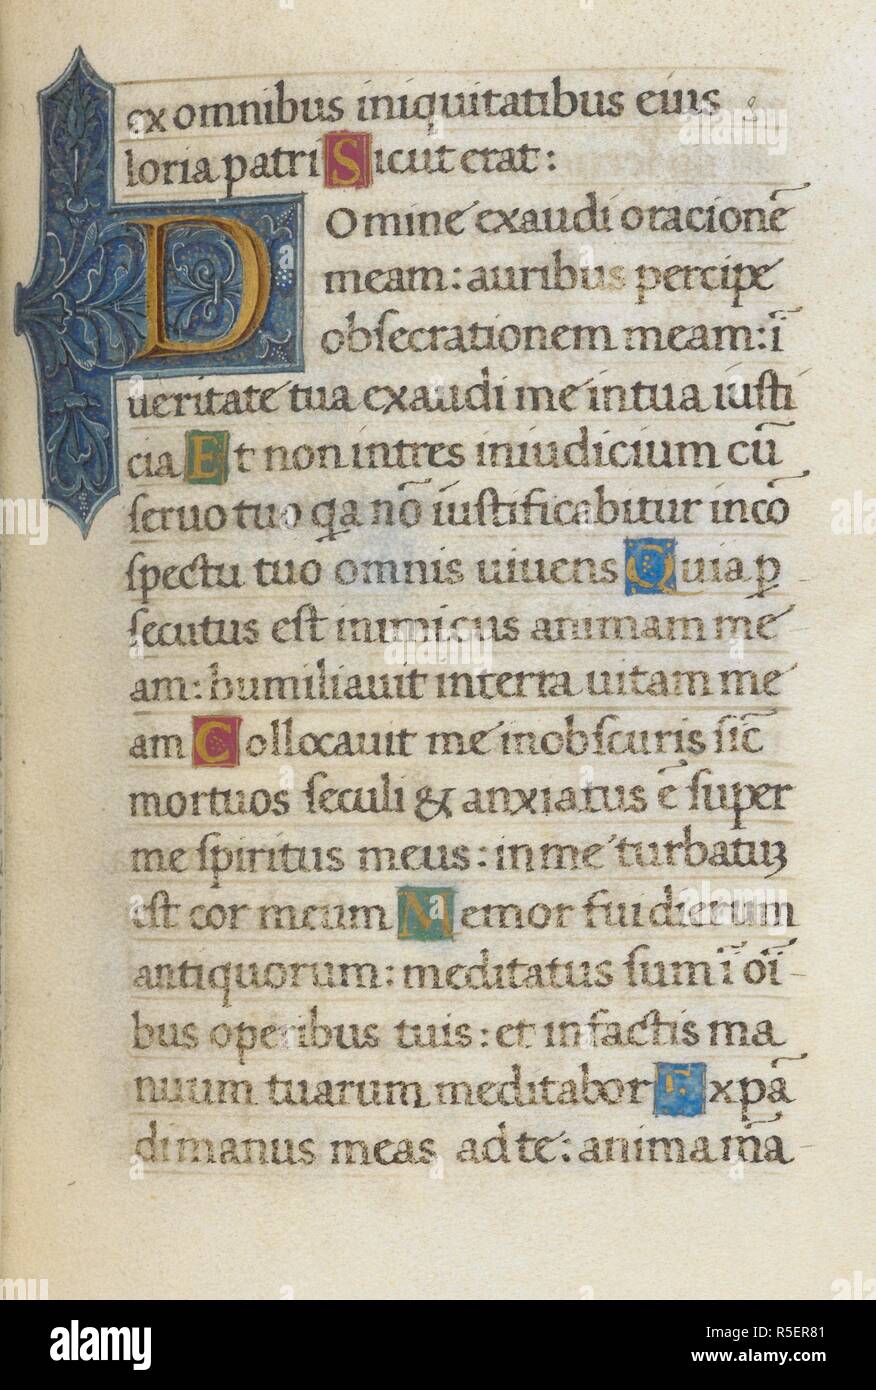 ex omnibus iniquitatibus eius g
loria patri Sicut erat:
Domine exaudi oracionē
meam: auribus percipe
obſecrationem meam: ī
ueritate tua exaudi me in tua iuſti
cia Et non intres in iudicium cū
ſeruo tuo qa nō iuſtificabitur in cō
ſpectu tuo omnis uiuens Quia ꝑ
ſecutus eſt inimicus animam me
am: humiliauit in terra uitam me
am Collocauit me in obſcuris ſic̄
mortuos ſeculi & anxiatus ē ſuper
me ſpiritus meus: in me turbatuꝫ
eſt cor meum Memor fui dierum
antiquorum: meditatus ſum ī oī
bus operibus tuis: et in factis ma
nuum tuarum meditabor Expā
di manus meas ad te: anima mā
alamy
Image ID: R5ER81
www.alamy.com